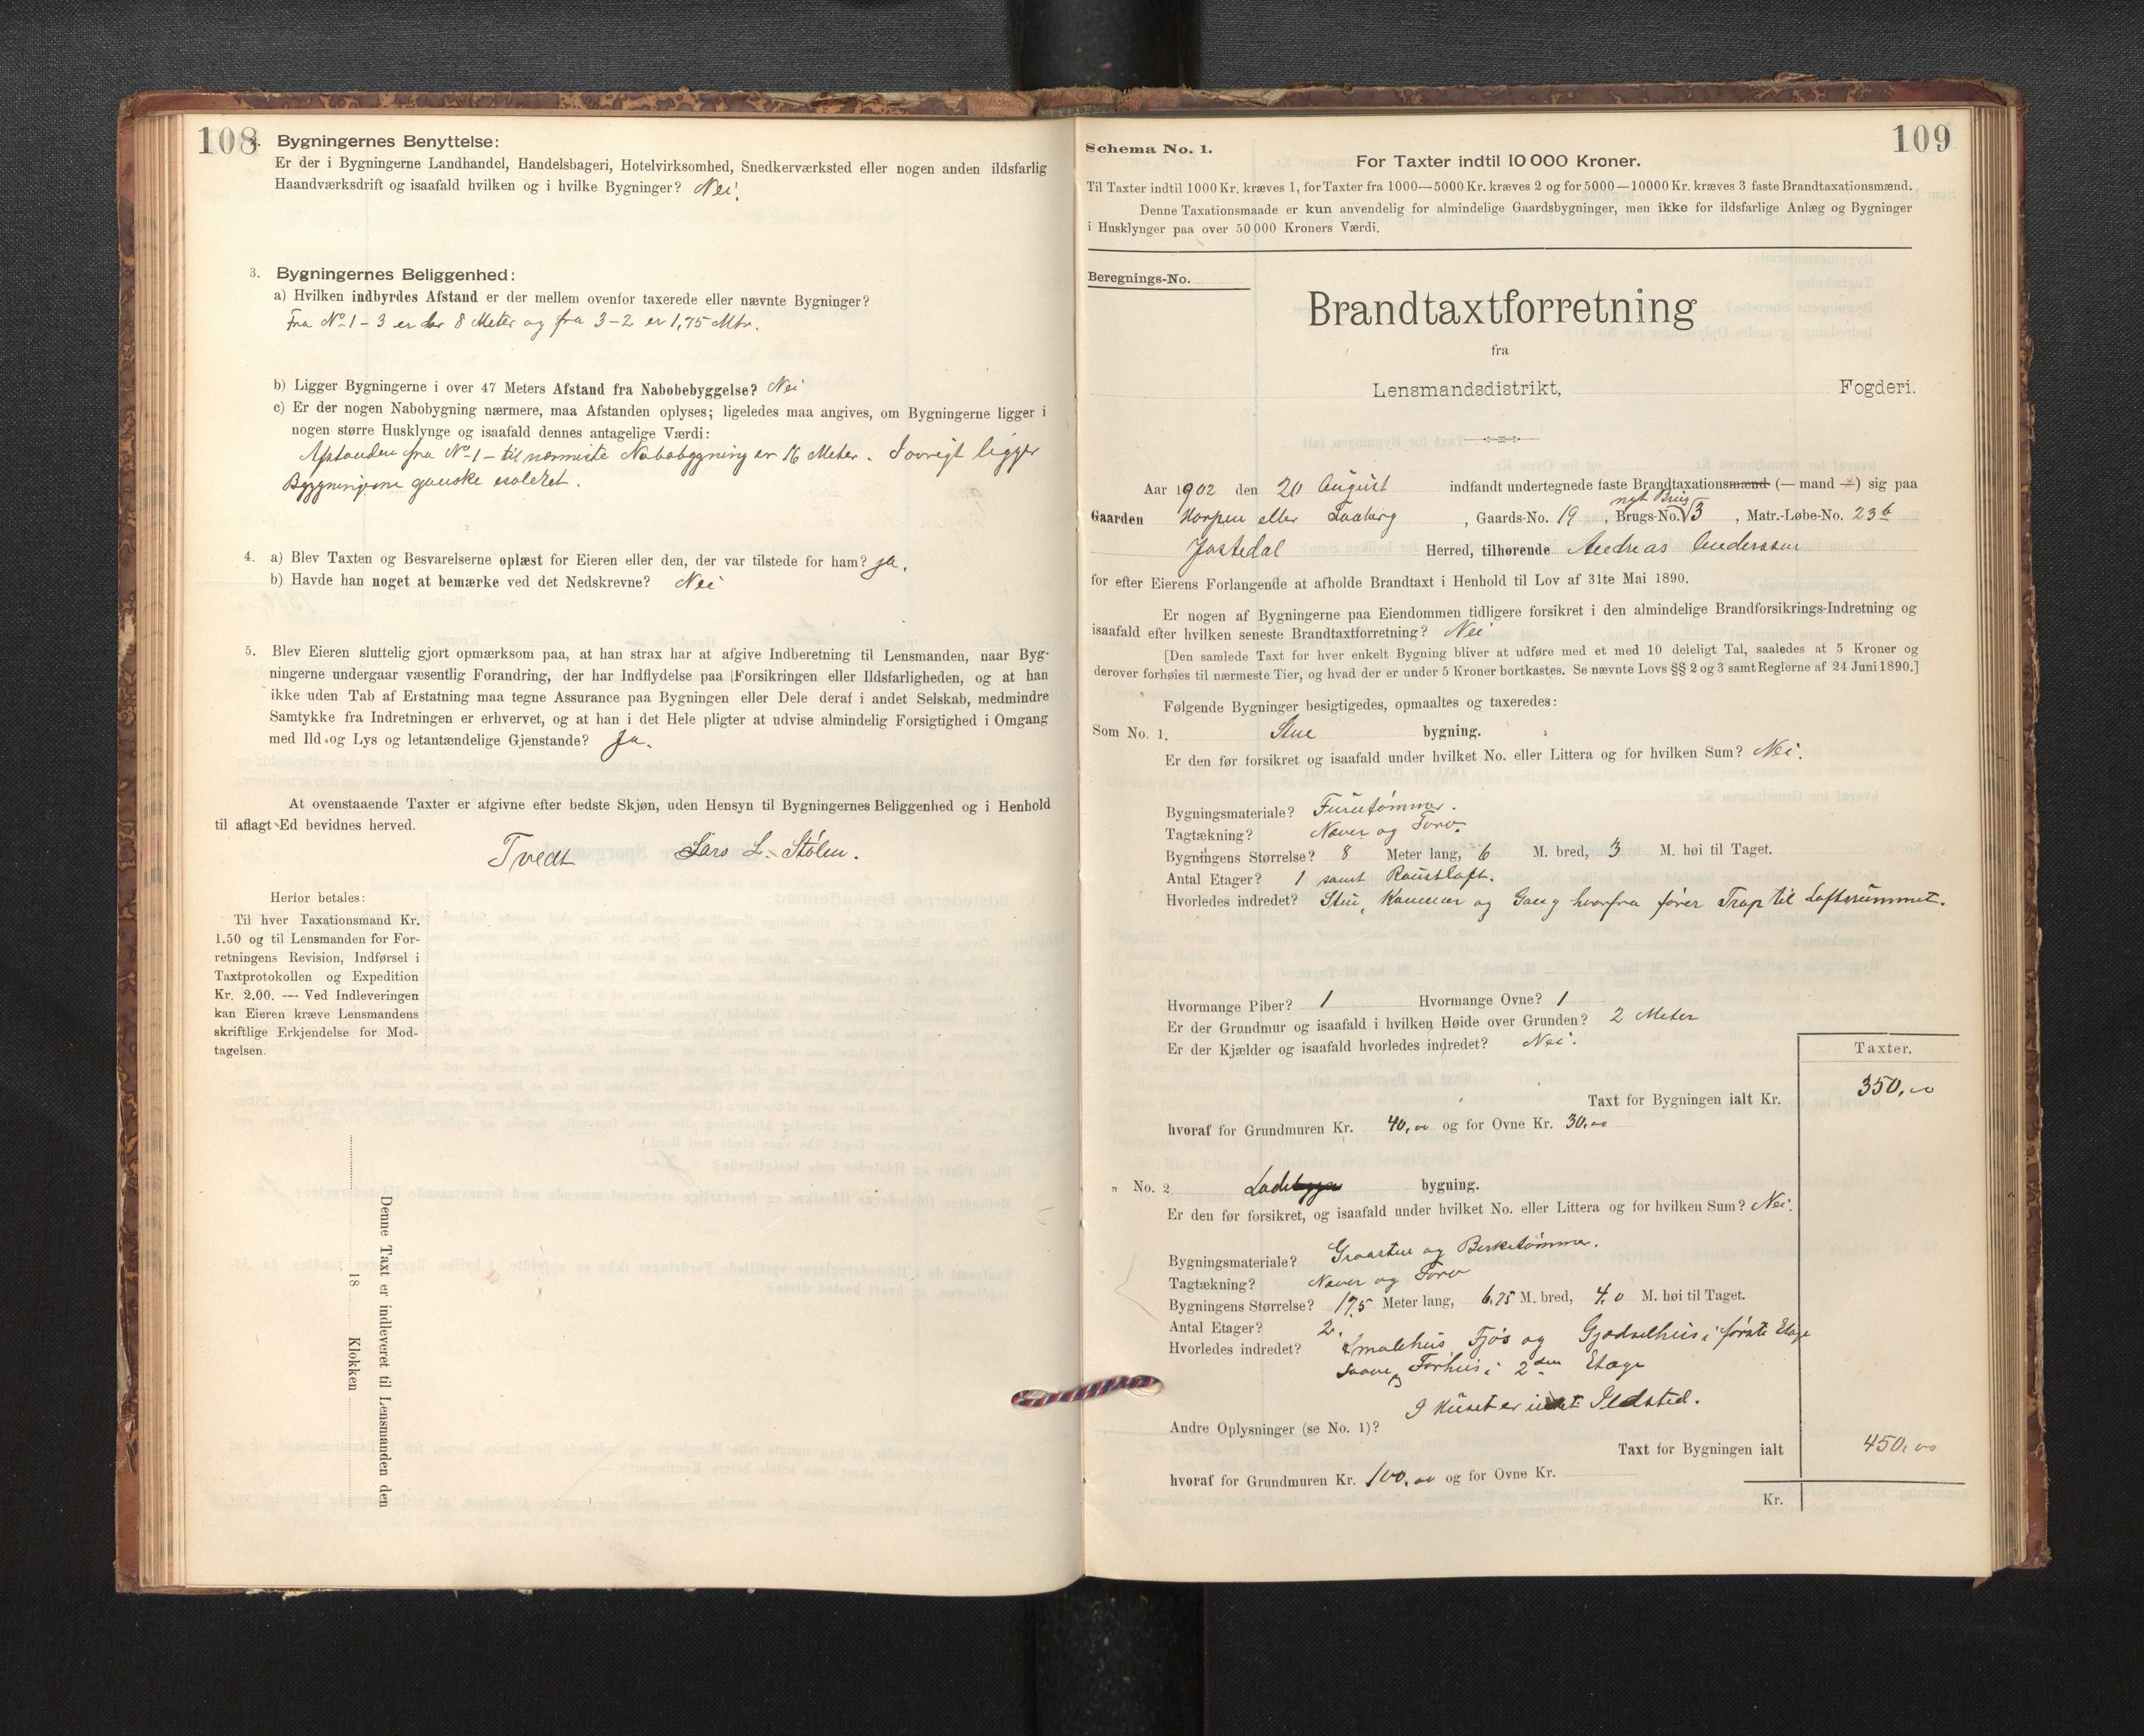 108
2. Bygningernes Benyttelse:
Er der i Bygningerne Landhandel, Handelsbageri, Hotelvirksomhed, Snedkerværksted eller nogen anden ildsfarlig
Haandværksdrift og isaafald hvilken og i hvilke Bygninger? Nei!
3. Bygningernes Beliggenhed:
a) Hvilken indbyrdes Afstand er der mellem ovenfor taxerede eller nævnte Bygninger?
Fra No 1 - 3 er der 8 Meter og fra 3-2 er 1,75 Mtr.
b) Ligger Bygningerne i over 47 Meters Afstand fra Nabobebyggelse? Nei
c) Er der nogen Nabobygning nærmere, maa Afstanden oplyses; ligeledes maa angives, om Bygningerne ligger i
nogen større Husklynge og isaafald dennes antagelige Værdi:
Afstanden fra No 1 - til nærmeste Nabobygning er 16 Meter. I øvrigt ligger
Bygningerne ganske isoleret.
4. a) Blev Taxten og Besvarelserne oplæst for Eieren eller den, der var tilstede for ham? Ja.
b) Havde han noget at bemærke ved det Nedskrevne? Nei
5. Blev Eieren sluttelig gjort opmærksom paa, at han strax har at afgive Indberetning til Lensmanden, naar Byg-
ningerne undergaar væsentlig Forandring, der har Indflydelse paa Forsikringen eller Ildsfarligheden, og at han
ikke uden Tab af Erstatning maa tegne Assurance paa Bygningen eller Dele deraf i andet Selskab, medmindre
Samtykke fra Indretningen er erhvervet, og at han i det Hele pligter at udvise almindelig Forsigtighed i Omgang
med Ild og Lys og letantændelige Gjenstande? Ja.
At ovenstaaende Taxter er afgivne efter bedste Skjøn, uden Hensyn til Bygningernes Beliggenhed og i Henhold
til aflagt Ed bevidnes herved.
Tvedt Lars L. Stølen.
Herfor betales:
Til hver Taxationsmand Kr.
1.50 og til Lensmanden for For-
retningens Revision, Indførsel i
Taxtprotokollen og Expedition
Kr. 2.00. — Ved Indleveringen
kan Eieren kræve Lensmandens
skriftlige Erkjendelse for Mod-
tagelsen.
Denne Taxt er indleveret til Lensmanden den
18 Klokken
109
Schema No. 1.
For Taxter indtil 10 000 Kroner.
Til Taxter indtil 1000 Kr. kræves 1, for Taxter fra 1000—5000 Kr. kræves 2 og for 5000—10000 Kr. kræves 3 faste Brandtaxationsmænd.
Denne Taxationsmaade er kun anvendelig for almindelige Gaardsbygninger, men ikke for ildsfarlige Anlæg og Bygninger
i Husklynger paa over 50 000 Kroners Værdi.
Beregnings-No.
Brandtaxtforretning
fra
Lensmandsdistrikt, Fogderi.
Aar 1902 den 20 August indfandt undertegnede faste Brandtaxationsmænd (— mand —) sig paa
nyt Brug
Gaarden Horpen eller Faaberg, Gaards-No. 19, Brugs-No. 3, Matr.-Løbe-No. 23b
Jostedal Herred, tilhørende Andreas Anderssen
for efter Eierens Forlangende at afholde Brandtaxt i Henhold til Lov af 31te Mai 1890.
Er nogen af Bygningerne paa Eiendommen tidligere forsikret i den almindelige Brandforsikrings-Indretning og
isaafald efter hvilken seneste Brandtaxtforretning? Nei
[Den samlede Taxt for hver enkelt Bygning bliver at udføre med et med 10 deleligt Tal, saaledes at 5 Kroner og
derover forhøies til nærmeste Tier, og hvad der er under 5 Kroner bortkastes. Se nævnte Lovs §§ 2 og 3 samt Reglerne af 24 Juni 1890.]
Følgende Bygninger besigtigedes, opmaaltes og taxeredes:
Som No. 1. Stue bygning.
Er den før forsikret og isaafald under hvilket No. eller Littera og for hvilken Sum? Nei.
Bygningsmateriale? Furutømmer.
Tagtækning? Næver og Torv.
Bygningens Størrelse? 8 Meter lang, 6 M. bred, 3 M. høi til Taget.
Antal Etager? 1 samt Raustloft.
Hvorledes indredet? Stue, Kammer og Gang hvorfra fører Trap til Loftsrummet.
Hvormange Piber? 1 Hvormange Ovne? 1
Er der Grundmur og isaafald i hvilken Høide over Grunden? 2 Meter
Er der Kjælder og isaafald hvorledes indredet? Nei.
Taxter.
Taxt for Bygningen ialt Kr. 350,00
hvoraf for Grundmuren Kr. 40,00 og for Ovne Kr. 30,00
" No. 2. Lade bygning.
Er den før forsikret, og isaafald under hvilket No. eller Littera og for hvilken Sum? Nei.
Bygningsmateriale? Graasten og Birketømmer.
Tagtækning? Næver og Torv
Bygningens Størrelse? 17,5 Meter lang, 6,75 M. bred, 4,0 M. høi til Taget.
Antal Etager? 2.
Hvorledes indredet? Smalehus, Fjøs og Gjødselhus i første Etage
Laave og Forhus i 2den Etage
I Huset er intet Ildsted.
Andre Oplysninger (se No. 1)?
Taxt for Bygningen ialt 450,00
hvoraf for Grundmuren Kr. 100,00 og for Ovne Kr.
Kr.